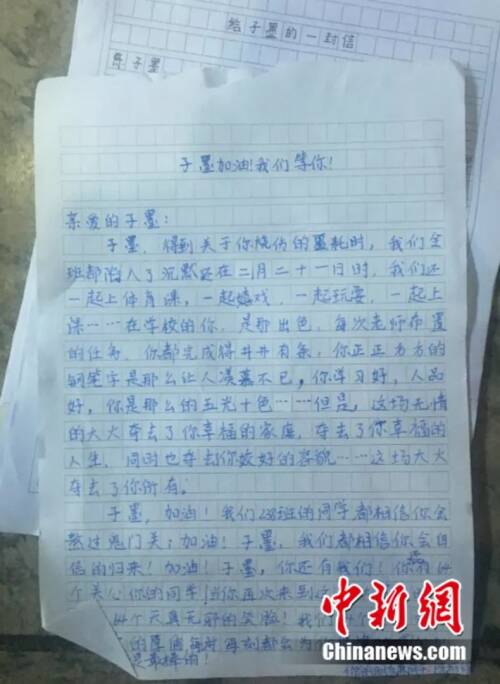 给子墨的一封信
子墨
子墨加油!我们等你!
亲爱的子墨:
子墨,得到关于你烧伤的噩耗时,我们全
班都陷入了沉默还在二月二十一日时,我们还
一起上体育课,一起嬉戏,一起玩耍,一起上
课……在学校的你,是那出色,每次老师布置
的任务,你都完成得井井有条,你正正方方的
钢笔字是那么让人羡慕不已,你学习好,人品
好,你是那么的五光十色……但是,这场无情
的大火夺去了你幸福的家庭,夺去了你幸福的
人生,同时也夺去你姣好的容貌……这场大火
夺去了你所有.
子墨,加油!我们238班的同学都相信你会
熬过鬼门关;加油!子墨,我们都相信你会自
信的归来!加油!子墨,你还有我们!你有64
个关心你的同学!当你再次来到
64个天真无邪的笑脸!我们
的厚阔每时每刻都么为你
是最棒的!
中新网
Chinanews.com